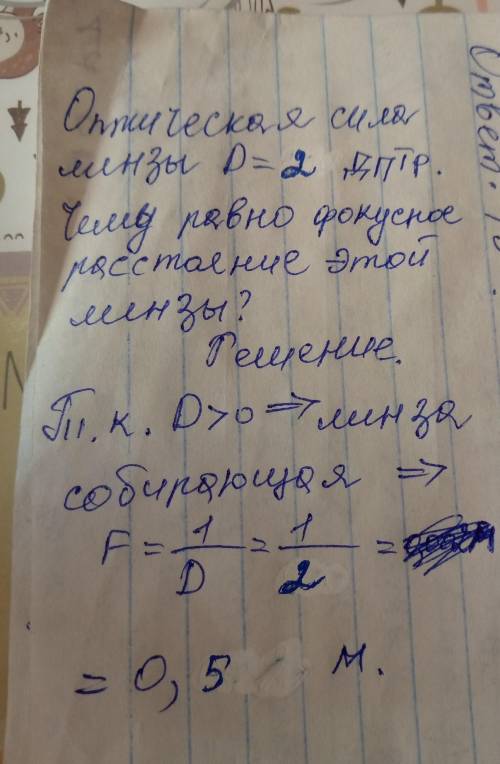 Оптическая сила
линзы D = 2 дптр.
Чему равно фокусное
расстояние этой
линзы?
Решение.
Т. к. D > 0 => линза
собирающая =>
F = 1/D = 1/2 =
= 0,5 м.
Ответ: